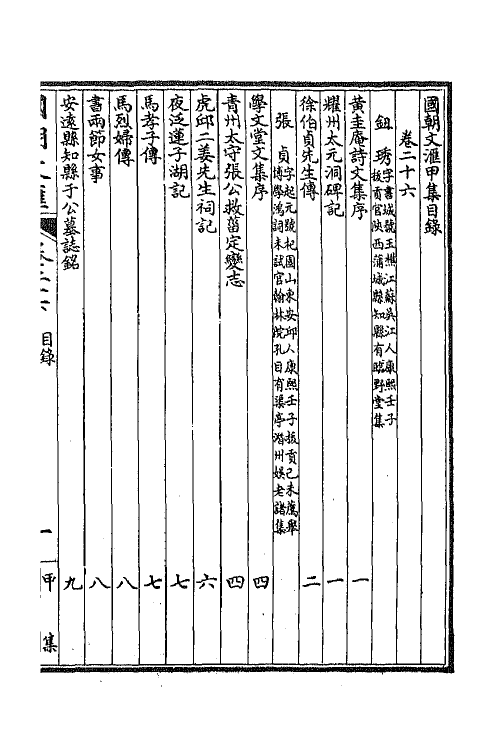 國朝文滙甲集目錄
卷二十六
鈕　琇字書城號玉樵江蘇吳江人康熙壬子
拔貢官陝西蒲城縣知縣有臨野堂集
黃圭庵詩文集序　一
耀州太元洞碑記　一
徐伯貞先生傳　二
張　貞字起元號杞園山東安邱人康熙壬子拔貢己未薦舉
博學鴻詞未試官翰林院孔目有渠亭潛州娛老諸集
學文堂文集序　四
青州太守張公救菑定變志　四
虎邱二姜先生祠記　六
夜泛蓮子湖記　七
馬孝子傳　七
馬烈婦傳　八
書兩節女事　八
安遠縣知縣于公墓誌銘　九
國朝文滙　卷二六　目錄　一　甲　集